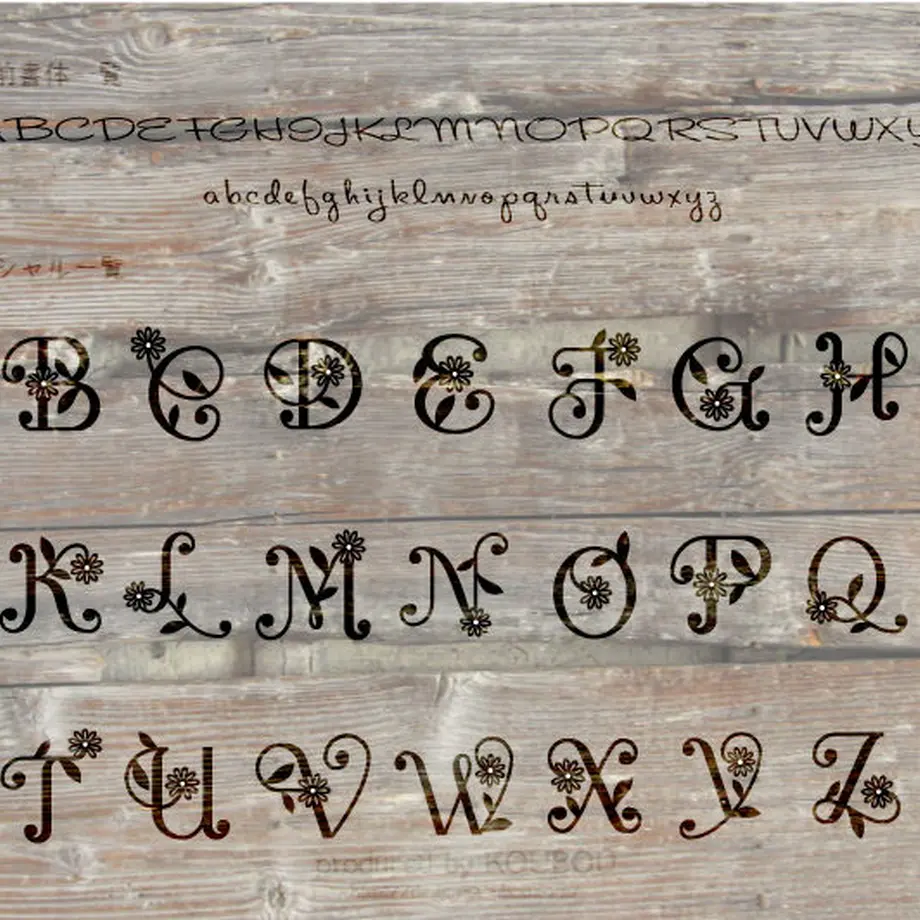 前書体一覧
BCDEFGHIJKLMNOPQRSTUVWXY
abcdefghijklmnopqrstuvwxyz
シャル一覧
B C D E F G H
K L M N O P Q
T U V W X Y Z
produced by KOUBOU